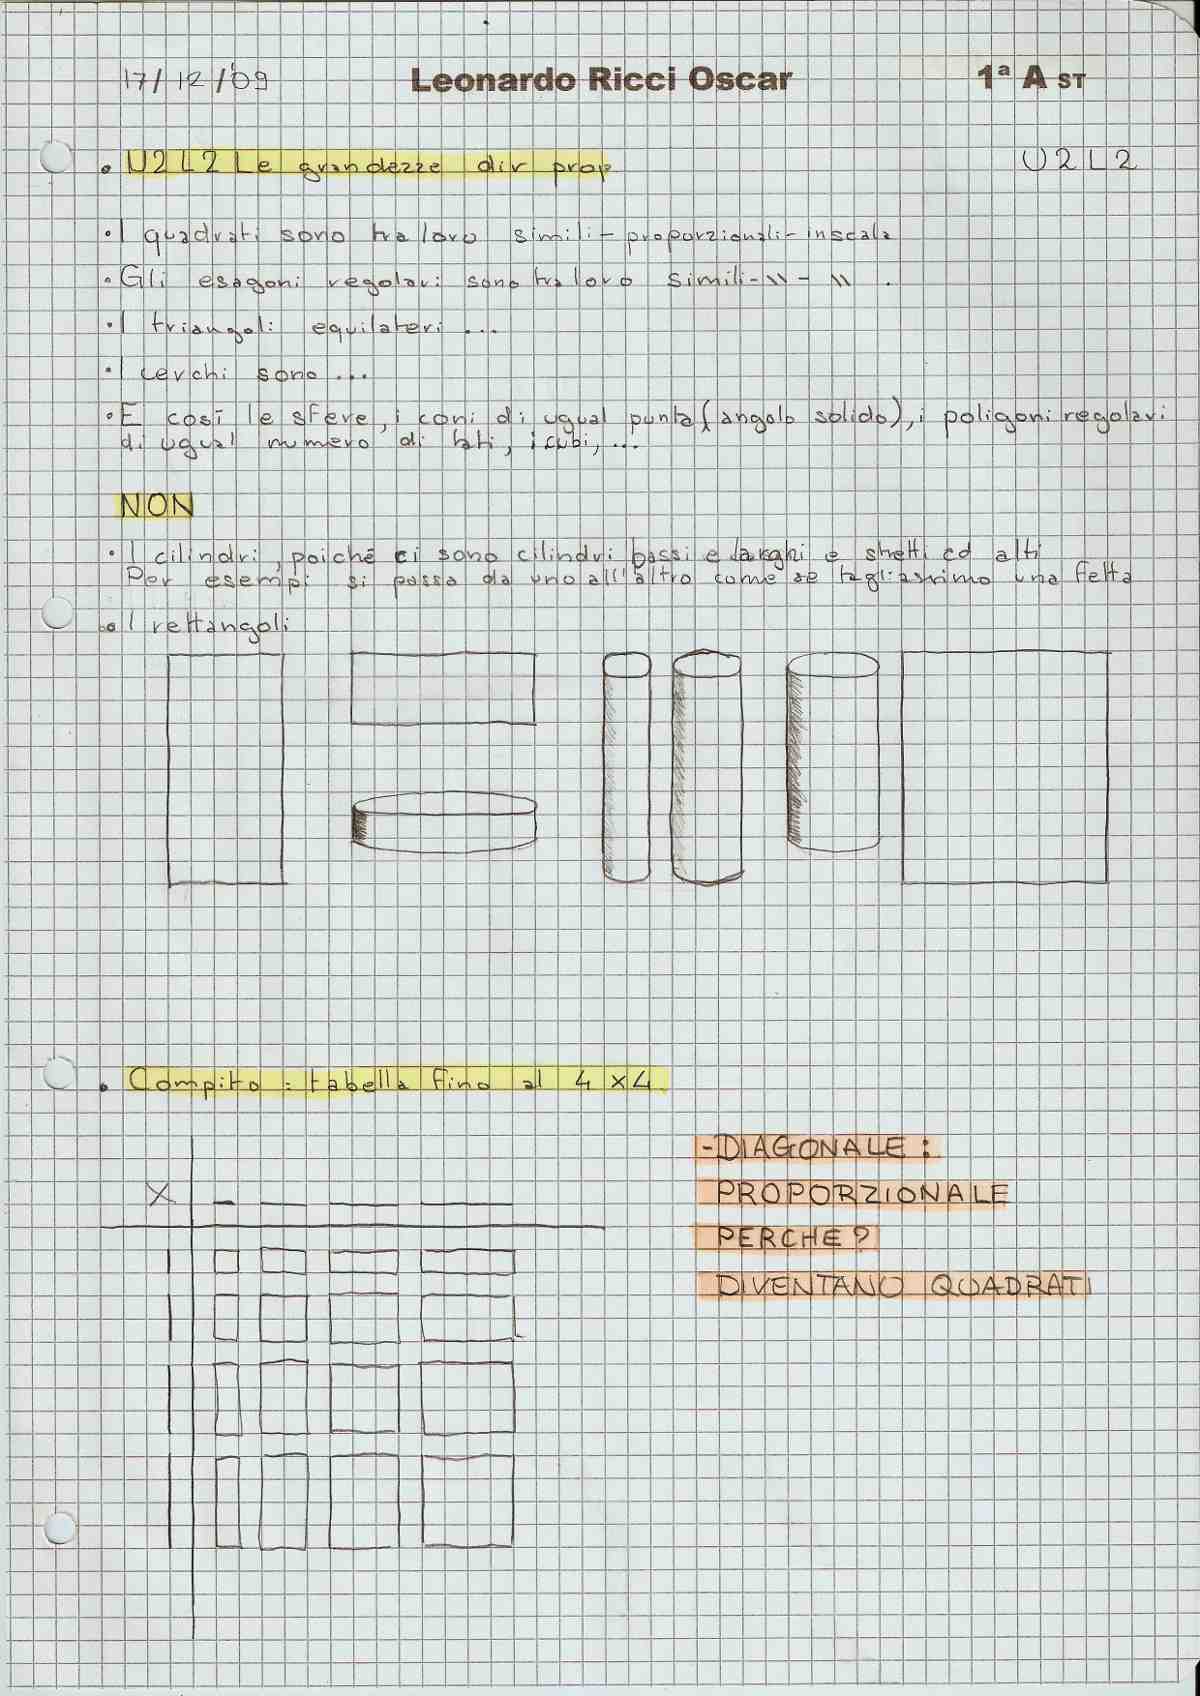 17/12/'09 Leonardo Ricci Oscar 1ª A ST
• U2L2 Le grandezze dir prop U2L2
• I quadrati sono tra loro simili - proporzionali - in scala
• Gli esagoni regolari sono tra loro simili - \\ - \\ .
• I triangoli equilateri ...
• I cerchi sono ...
• E così le sfere, i coni di ugual punta (angolo solido), i poligoni regolari
di ugual numero di lati, i cubi, ...
NON
• I cilindri, poiché ci sono cilindri bassi e larghi e stretti ed alti
Per esempi si passa da uno all'altro come se tagliassimo una fetta
• I rettangoli
• Compito : tabella fino al 4 x 4
X
- DIAGONALE :
PROPORZIONALE
PERCHE?
DIVENTANO QUADRATI